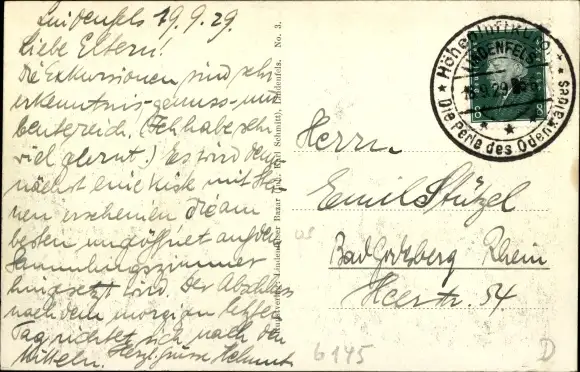 Lindenfels 19.9.29.
Liebe Eltern!
Die Exkursionen sind sehr
erkenntnis-genuss-und
beutereich. (Ich habe sehr
viel gelernt.) Es wird dem
nächst eine Kiste mit Stei
nen erscheinen die am
besten ungöffnet auf das
Sammlungszimmer
hingesetzt wird. Der Abschluss
nach dem morgigen letzten
Tag richtet sich nach den
Mitteln. Herzl. Grüsse Helmut
No. 3.
Lindenfelser Bazar
Schmitt), Lindenfels.
Höhenluftkurort
LINDENFELS
9.29
Die Perle des Odenwaldes
8 8
Herrn
Emil Stützel
Bad Godesberg Rhein
Heerstr. 54.
6145
D